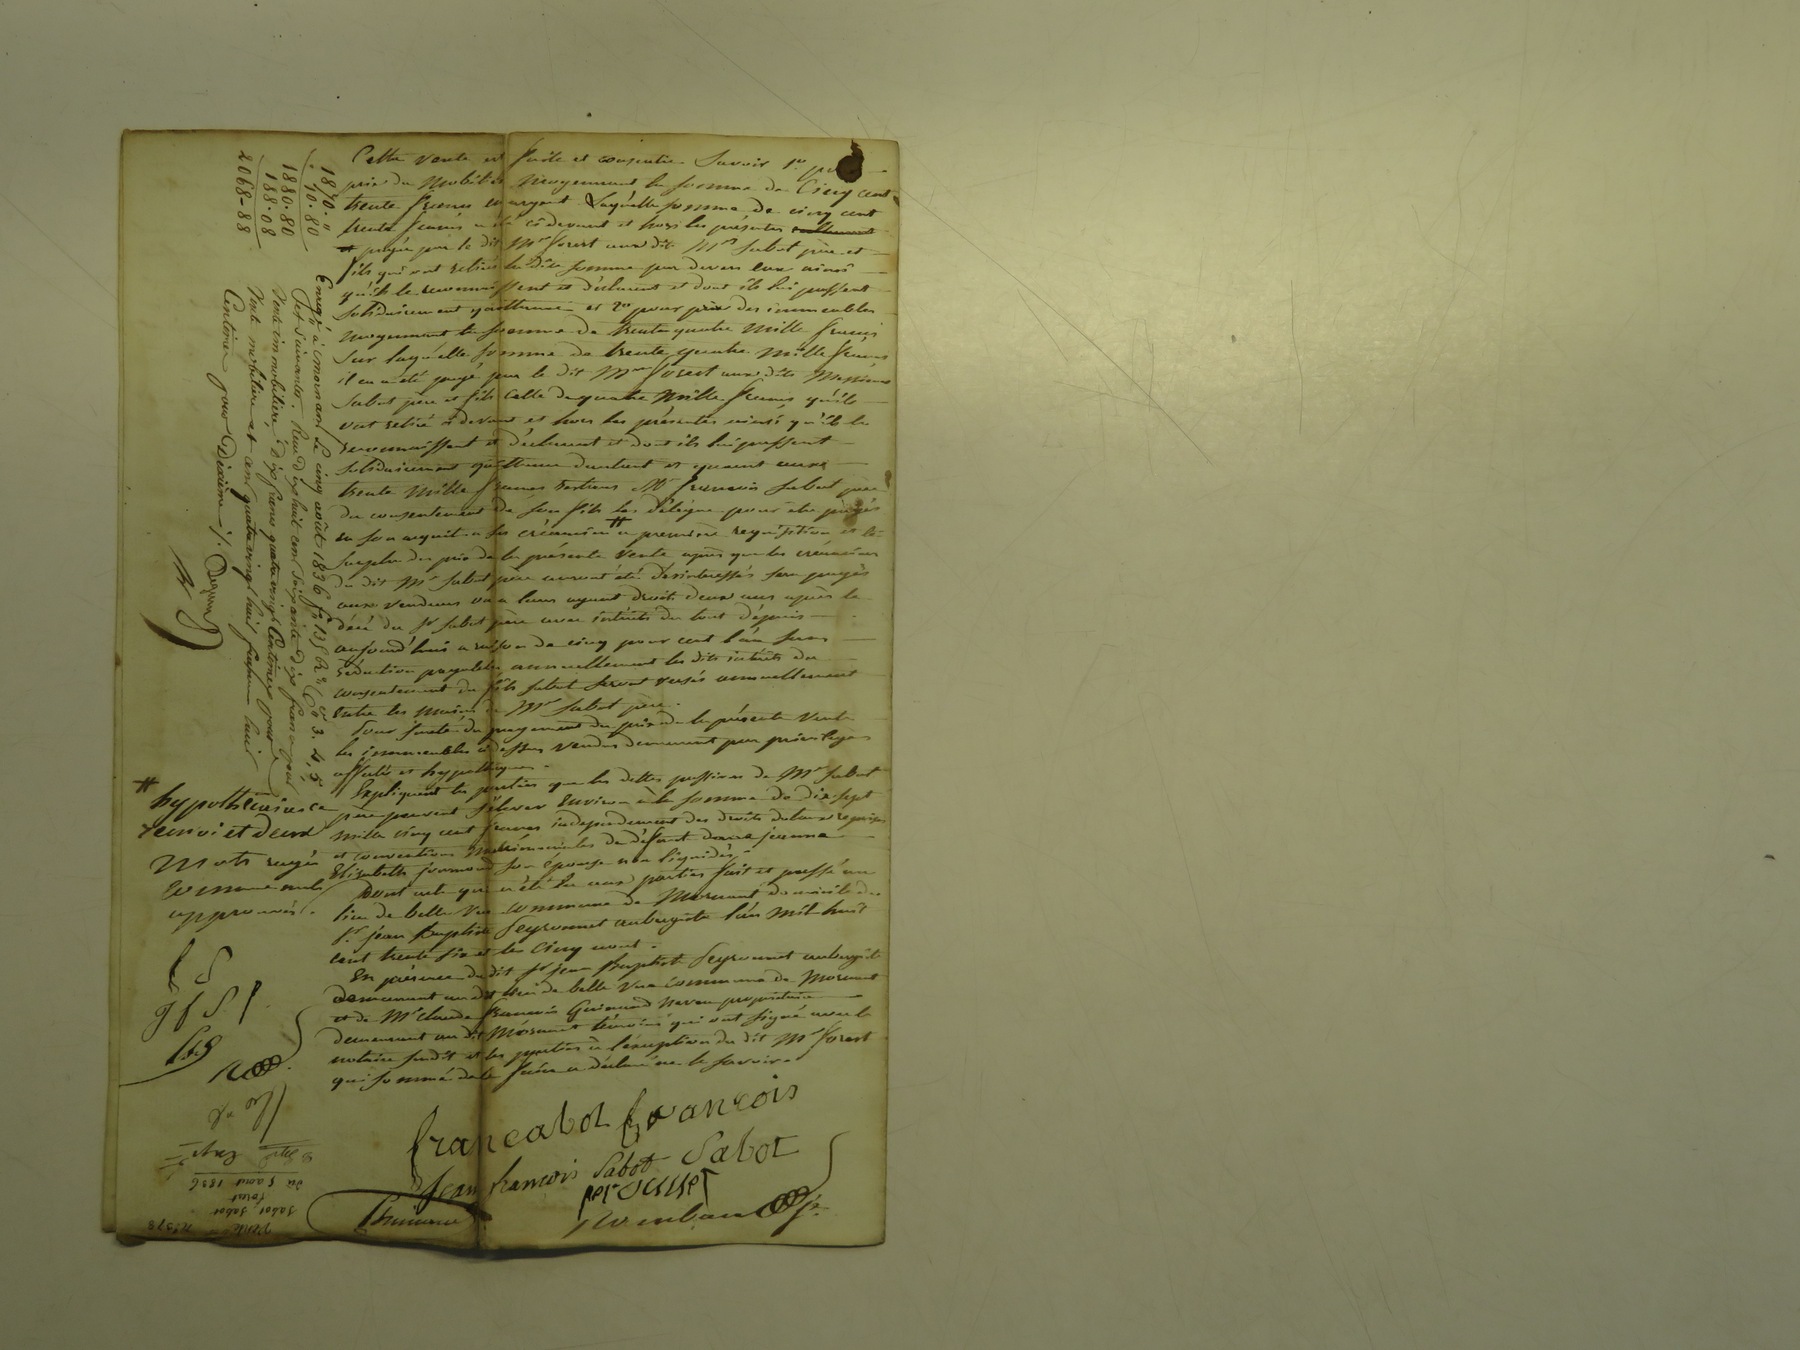 Cette vente est faite et consentie Savoir 1°
prix du Mobilier moyennant la somme de Cinq cent
trente francs en argent Laquelle somme de cinq cent
trente francs a été ci devant et hors les présentes
payée par le dit Mr forest aux dit Mrs Sabot père et
fils qui ont retiré la dite somme par devers eux ainsi
qu'ils le reconnaissent et déclarent et dont ils lui passent
solidairement quittance et 2° pour prix des immeubles
moyennant la somme de trente quatre mille francs
Sur laquelle somme de trente quatre mille francs
il en a été payé par le dit Mr forest aux dits Messieurs
Sabot père et fils celle de quatre mille francs qu'ils
ont retiré ci devant et hors les présentes ainsi qu'ils le
reconnaissent et déclarent et dont ils lui passent
solidairement quittance d'autant et quant aux
trente mille francs restans Mr françois Sabot père
du consentement de son fils les délègue pour être payés
en son acquit a ses créanciers # a première requisition et le
surplus du prix de la présente vente après que les créanciers
du dit Mr Sabot père auront été désintéressés sera payés
aux vendeurs ou a leurs ayant droit deux ans après le
décé du Sr Sabot père avec intérêts du tout depuis
aujourd'hui a raison de cinq pour cent l'an sans
rédaction payables annuellement les dits intérêts du
consentement du fils Sabot seront versés annuellement
entre les mains de Mr Sabot père.
Pour sureté du payement du prix de la présente vente
les immeubles ci dessus vendus demeurent par privilèges
affectés et hypothéqués.
Expliquent les parties que les dettes passives de Mr Sabot
père peuvent s'élever environ à la somme de dix sept
mille cinq cent francs indépendament des droits dotaux reprises
et conventions matrimoniales de défunt dame jeanne
Elizabeth son épouse non liquidés.
Dont acte qui a été lu aux parties fait et passé au
lieu de belle Vue commune de Mornant domicile du
Sr jean Baptiste Peyronnet aubergiste l'an mil huit
cent trente six et le Cinq aout.
En présence du dit Sr jean Baptiste Peyronnet aubergiste
demeurant au dit lieu de belle Vue commune de Mornant
et de Mr claude françois Guinand neveu propriétaire
demeurant au dit Mornant témoins qui ont signé avec le
notaire susdit et les parties à l'exception du dit Mr forest
qui sommé de le faire a déclaré ne le savoir.
françois
Sabot
jean françois Sabot
1870."
10.80
1880.80
188.08
2068-88
Enregé à mornant le cinq août 1836 fo 135 Ro Co 3. 4, 5
et suivantes. Reçu dix huit cent soixante dix francs pour
Vente immobilière, dix francs quatre vingt Centimes pour
Vente mobilière et cent quatre vingt huit francs huit
Centimes pour Dixième ./.
# hypothécaires ce
renvoi et deux
Mots rayés
comme nuls
approuvés.
f S
g f S. P
n° 378
Vente
Sabot, Sabot
forest
du 5 aout 1836